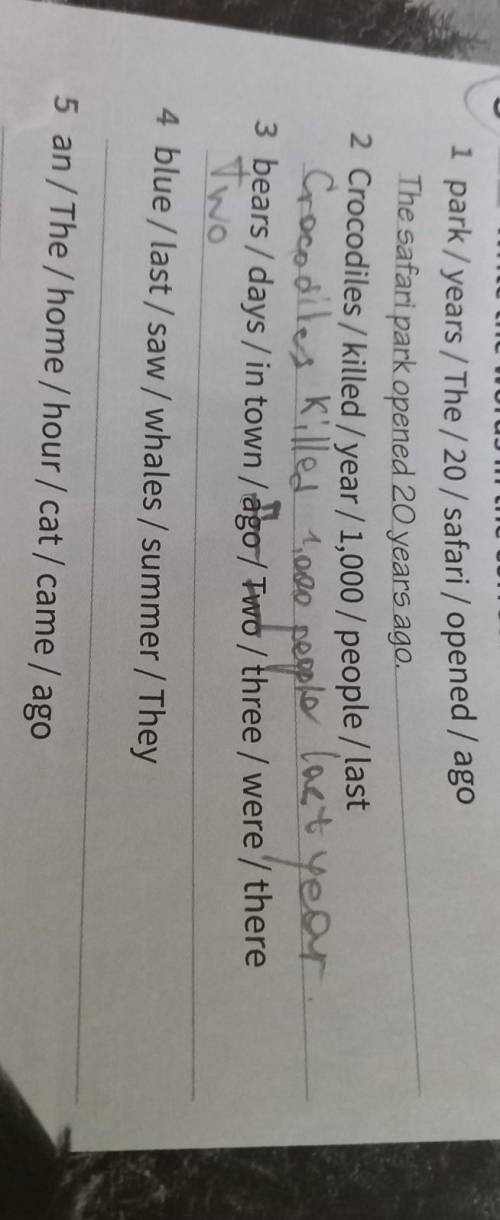 1 park / years / The / 20 / safari / opened / ago
The safari park opened 20 years ago.
2 Crocodiles / killed / year / 1,000 / people / last
Crocodiles killed 1,000 people last year.
3 bears / days / in town / ago / Two / three / were / there
Two
4 blue / last / saw / whales / summer / They
5 an / The / home / hour / cat / came / ago